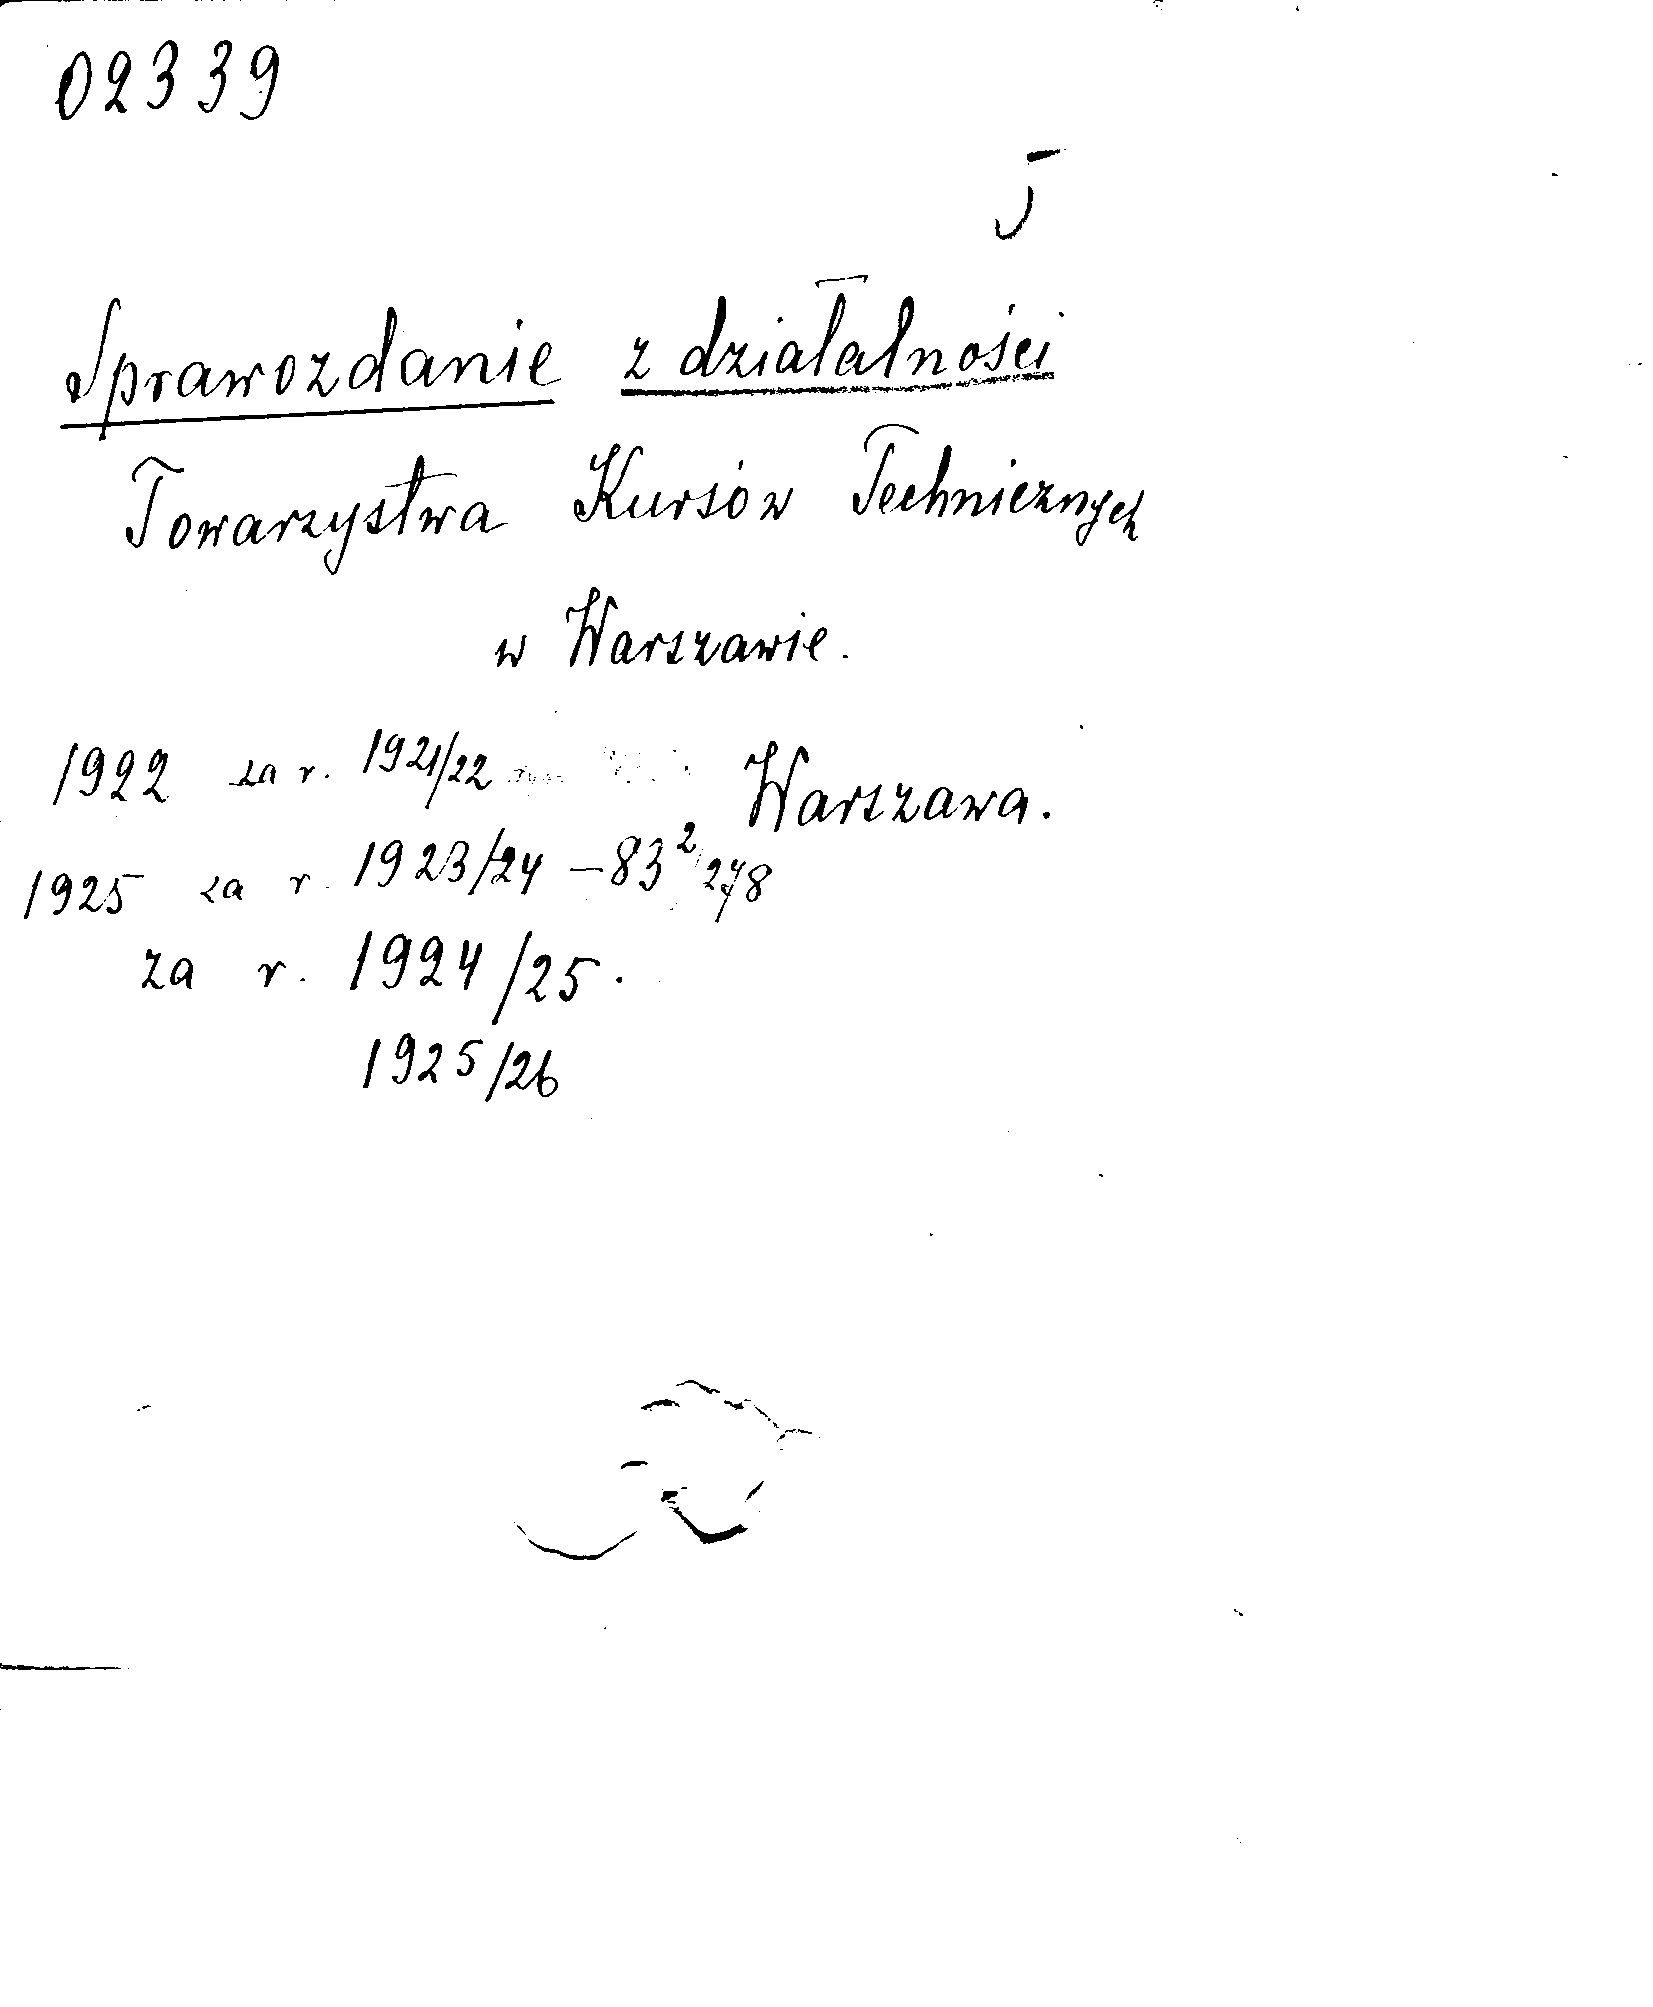 02339
5
Sprawozdanie z działalności
Towarzystwa Kursów Technicznych
w Warszawie.
1922 za r. 1921/22 Warszawa.
1925 za r. 1923/24 – 83² 278
za r. 1924/25.
1925/26